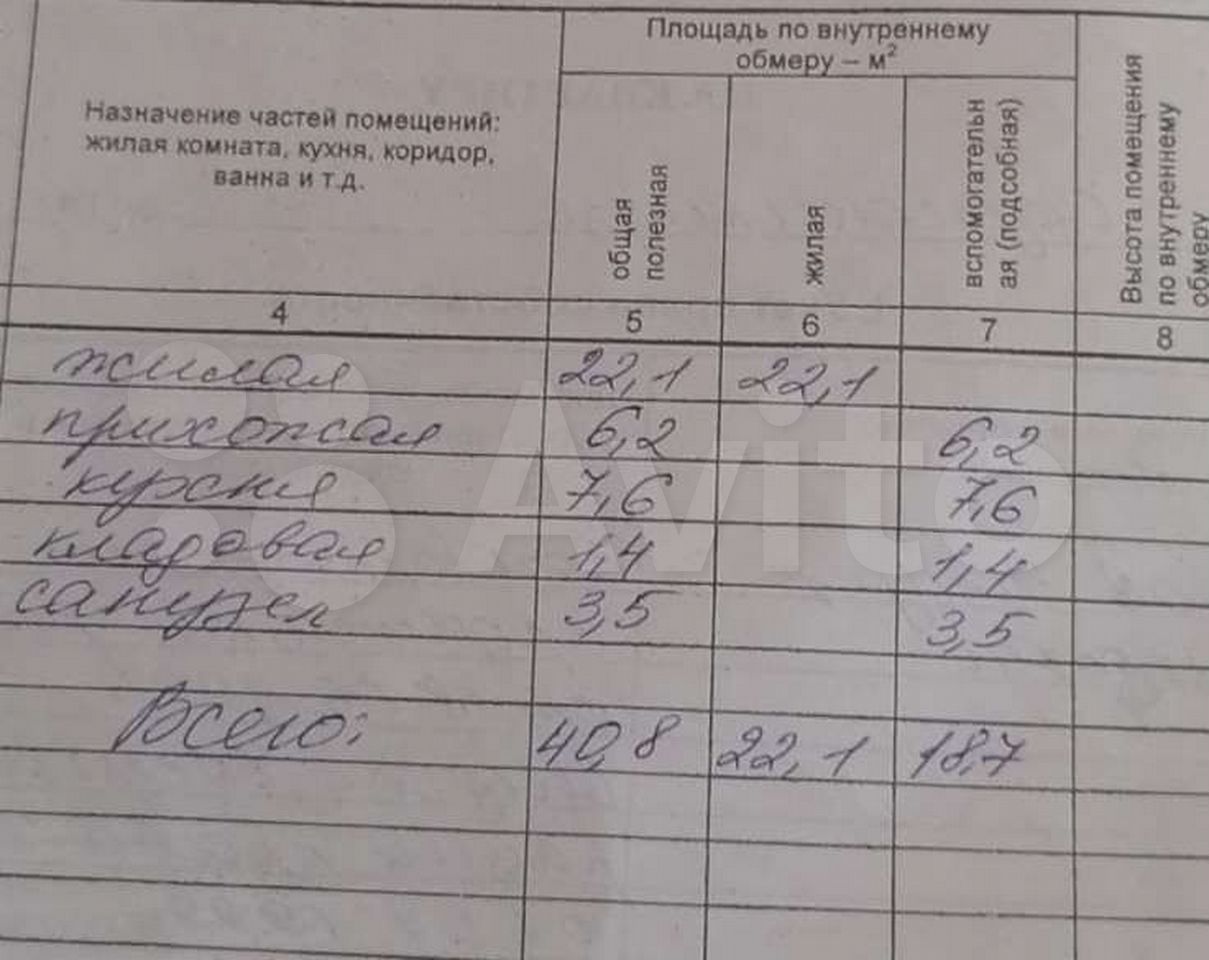 Назначение частей помещений:
жилая комната, кухня, коридор,
ванна и т.д.
Площадь по внутреннему
обмеру – м²
общая
полезная
жилая
вспомогательн
ая (подсобная)
Высота помещения
по внутреннему
обмеру
4 5 6 7 8
жилая 22,1 22,1
прихожая 6,2 6,2
кухня 7,6 7,6
кладовая 1,4 1,4
санузел 3,5 3,5
Всего: 40,8 22,1 18,7
Avito